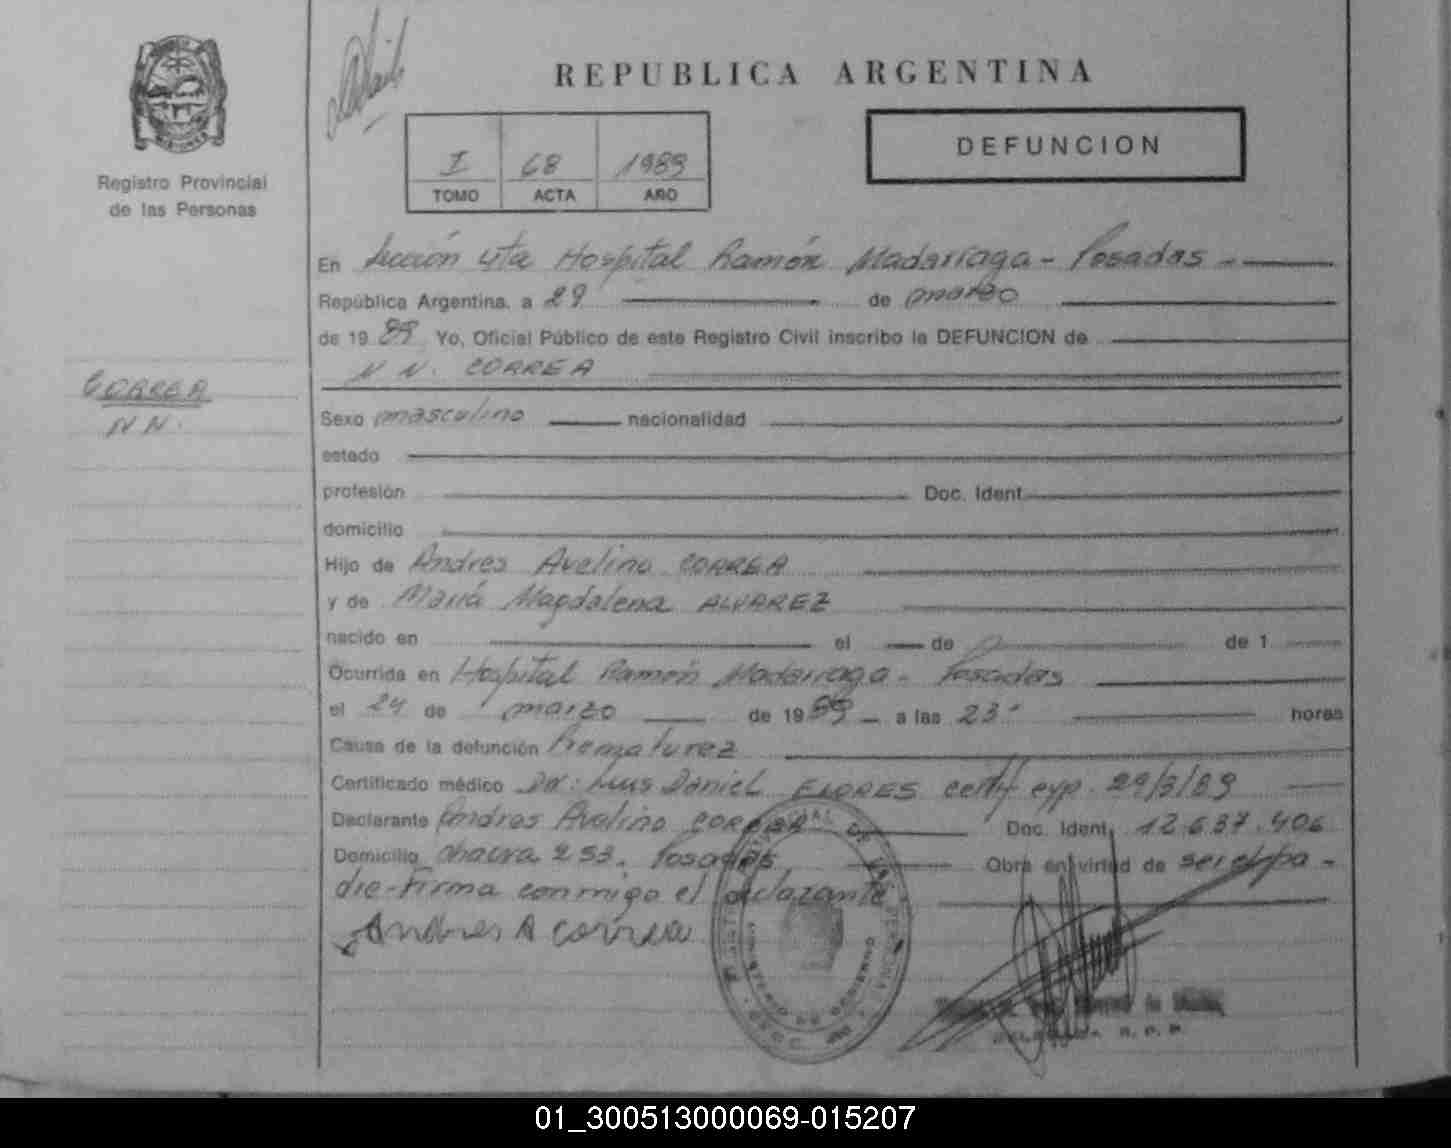 REPUBLICA ARGENTINA
DEFUNCION
I 68 1989
TOMO ACTA AÑO
Registro Provincial
de las Personas
CORREA
N N.
En Sección 4ta Hospital Ramón Madarriaga - Posadas -
República Argentina, a 29 de marzo
de 1989 Yo, Oficial Público de este Registro Civil inscribo la DEFUNCION de
N N. CORREA
Sexo masculino nacionalidad
estado
profesión Doc. Ident.
domicilio
Hijo de Andres Avelino CORREA
y de María Magdalena ALVAREZ
nacido en el de de 1
Ocurrida en Hospital Ramón Madarriaga - Posadas
el 24 de marzo de 1989 a las 23- horas
Causa de la defunción Prematurez
Certificado médico Dr. Luis Daniel FLORES certif exp. 29/3/89
Declarante Andres Avelino CORREA Doc. Ident. 12.637.406
Domicilio chacra 253. Posadas Obra en virtud de ser el pa-
dre-Firma conmigo el declarante
Andres A correa
REGISTRO PROVINCIAL DE LAS PERSONAS
MINISTERIO DE GOBIERNO
R. P. P.
01_300513000069-015207